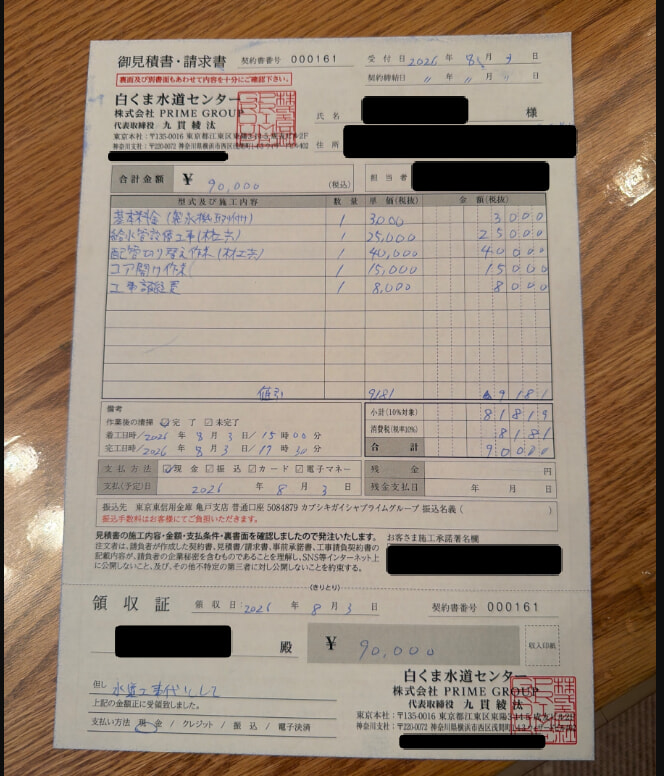 御見積書・請求書 契約書番号 000161 受付日 2026年 8月 3日
裏面及び別書面もあわせて内容を十分にご確認下さい。 契約締結日 〃年 〃月 〃日
白くま水道センター
株式会社 PRIME GROUP 氏名 様
代表取締役 九貫綾汰
東京本社：〒135-0016 東京都江東区東陽 2F 住所
神奈川支社：〒220-0072 神奈川県横浜市西区浅間町
合計金額 ¥ 90,000 (税込) 担当者
型式及び施工内容 数量 単価(税抜) 金額(税抜)
基本料金 1 3000 3000
給水管設備工事(材工共) 1 25,000 25000
配管切り替え作業(材工共) 1 40,000 40000
コア開け作業 1 15,000 15000
工事諸経費 1 8,000 8000
値引 9181 ▲9181
備考 小計(10%対象) 81819
作業後の清掃 ☑完了 □未完了 消費税(税率10%) 8181
着工日時/2026年 8月 3日/15時00分 合計 90000
完工日時/2026年 8月 3日/17時30分
支払方法 ☑現金 □振込 □カード □電子マネー 残金 円
支払(予定)日 2026年 8月 3日 残金支払日 年 月 日
振込先 東京東信用金庫 亀戸支店 普通口座 5084879 カブシキガイシャプライムグループ 振込名義( )
振込手数料はお客様にてご負担いただきます。
見積書の施工内容・金額・支払条件・裏書面を確認しましたので発注いたします。 お客さま施工承諾署名欄
注文者は、請負者が作成した契約書、見積書/請求書、事前承諾書、工事請負契約書の
記載内容が、請負者の企業秘密を含むものであることを理解し、SNS等インターネット上
に公開しないこと、及び、その他不特定の第三者に対し公開しないことを約束する。
(きりとり)
領収証 領収日 2026年 8月 3日 契約書番号 000161
殿 ¥ 90,000 収入印紙
但し 水道工事代として
上記の金額正に受領致しました。
支払い方法 現金 / クレジット / 振込 / 電子決済
白くま水道センター
株式会社 PRIME GROUP
代表取締役 九貫綾汰
東京本社：〒135-0016 東京都江東区東陽
神奈川支社：〒220-0072 神奈川県横浜市西区浅間町